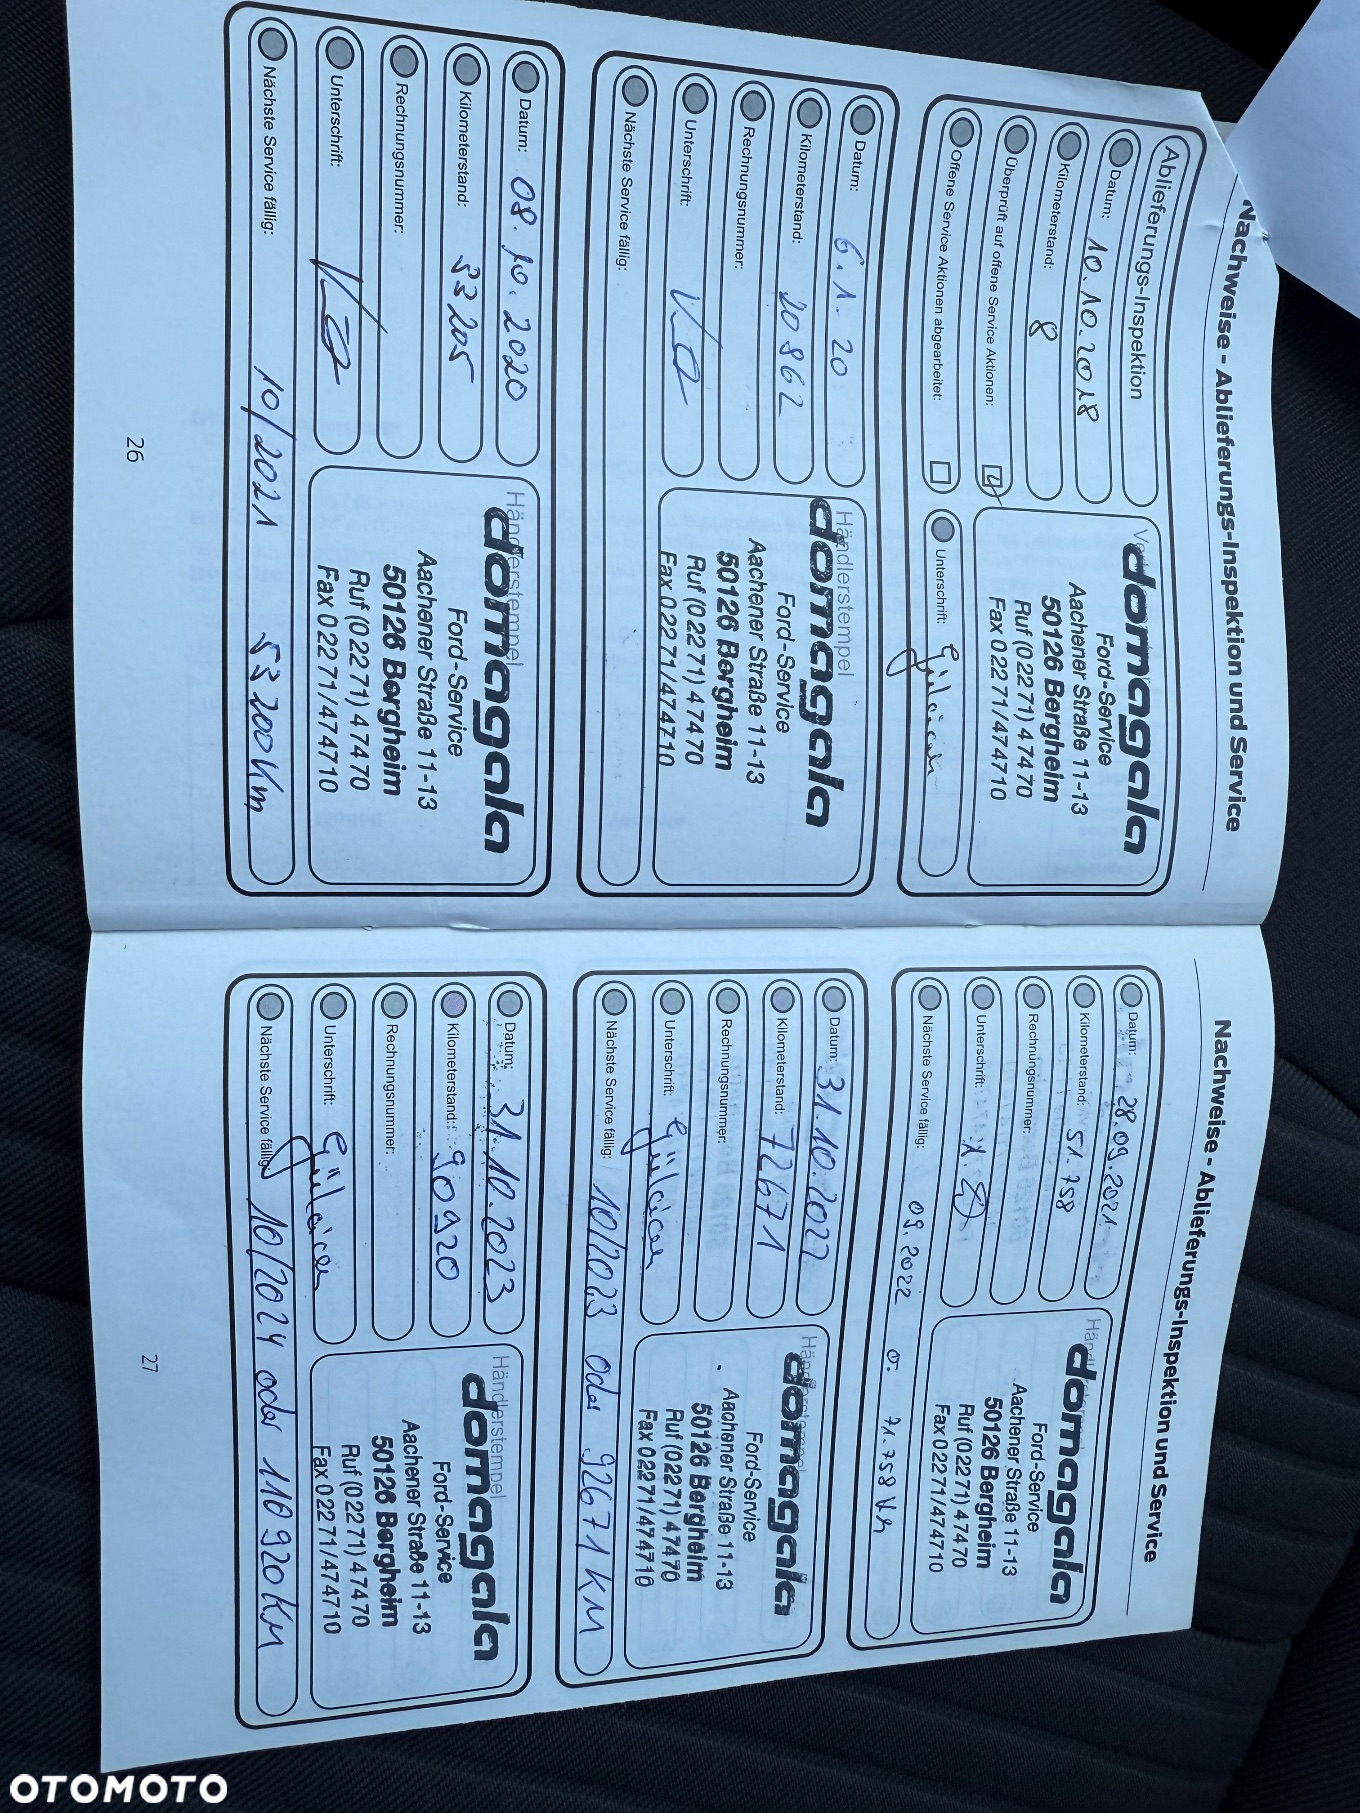 Nachweise - Ablieferungs-Inspektion und Service
Ablieferungs-Inspektion
Datum: 10.10.2018
Kilometerstand: 8
Überprüft auf offene Service Aktionen:
Offene Service Aktionen abgearbeitet:
domagala
Ford-Service
Aachener Straße 11-13
50126 Bergheim
Ruf (02271) 47470
Fax 02271/474710
Unterschrift:
Datum: 6.1.20
Kilometerstand: 20862
Rechnungsnummer:
Unterschrift:
Nächste Service fällig:
Händlerstempel
domagala
Ford-Service
Aachener Straße 11-13
50126 Bergheim
Ruf (02271) 47470
Fax 02271/474710
Datum: 08.10.2020
Kilometerstand: 33205
Rechnungsnummer:
Unterschrift:
Nächste Service fällig: 10/2021 53200 Km
Händlerstempel
domagala
Ford-Service
Aachener Straße 11-13
50126 Bergheim
Ruf (02271) 47470
Fax 02271/474710
26
Nachweise - Ablieferungs-Inspektion und Service
Datum: 28.09.2021
Kilometerstand: 51.758
Rechnungsnummer:
Unterschrift:
Nächste Service fällig: 09.2022 o. 71.758 Km
Händlerstempel
domagala
Ford-Service
Aachener Straße 11-13
50126 Bergheim
Ruf (02271) 47470
Fax 02271/474710
Datum: 31.10.2022
Kilometerstand: 72671
Rechnungsnummer:
Unterschrift:
Nächste Service fällig: 10/2023 oder 92671 KM
Händlerstempel
domagala
Ford-Service
Aachener Straße 11-13
50126 Bergheim
Ruf (02271) 47470
Fax 02271/474710
Datum: 31.10.2023
Kilometerstand: 90920
Rechnungsnummer:
Unterschrift:
Nächste Service fällig: 10/2024 oder 110920 KM
Händlerstempel
domagala
Ford-Service
Aachener Straße 11-13
50126 Bergheim
Ruf (02271) 47470
Fax 02271/474710
27
OTOMOTO